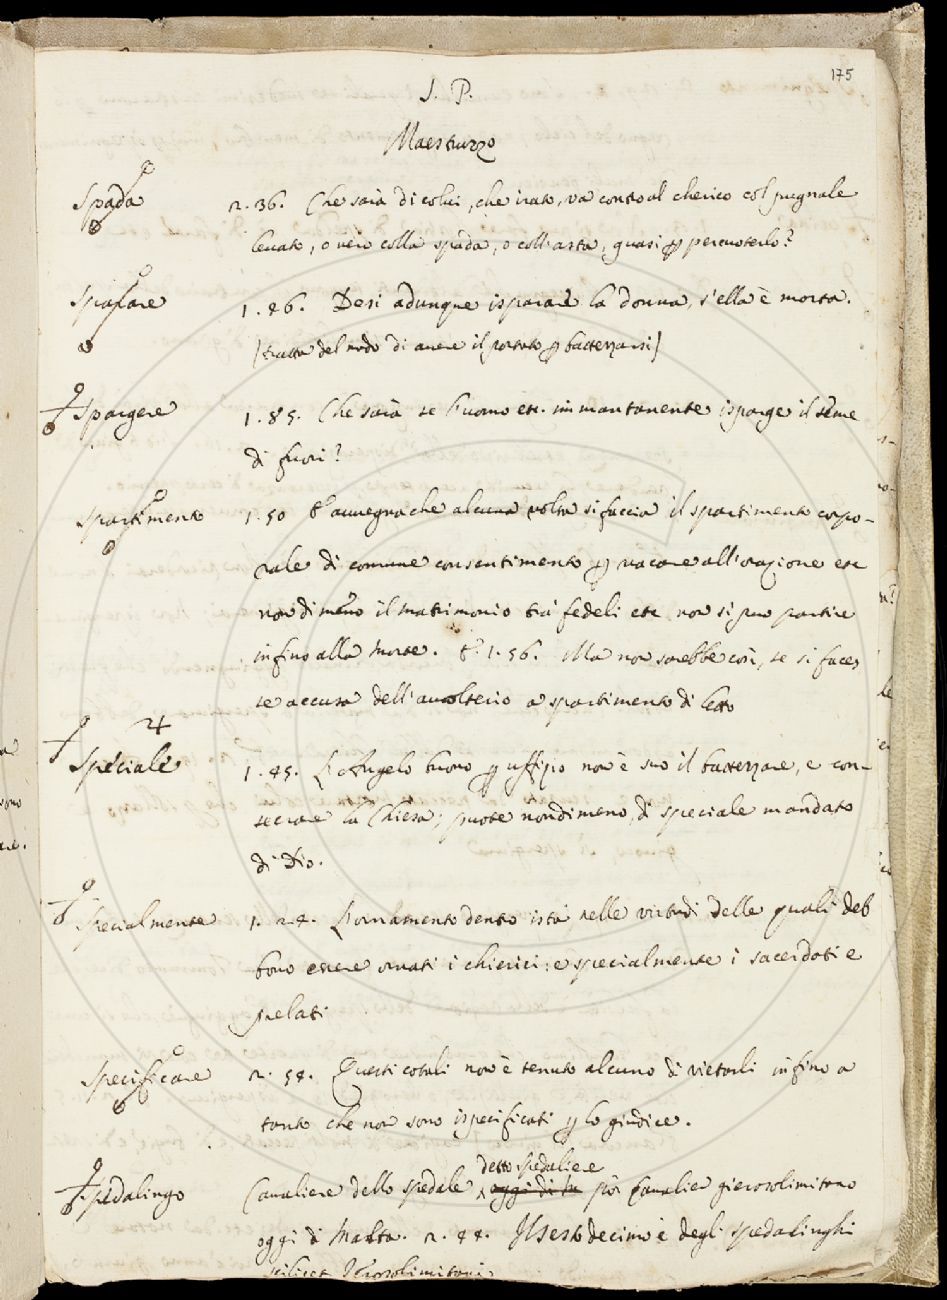 175
S. P.
Maestruzzo
Spada 2. 36. Che sarà di colui, che irato, va contro al cherico col pugnale
levato, o vero colla spada, o coll'asta, quasi p percuoterlo?
Sparare 1. 46. Desi adunque isparare la donna, s'ella è morta.
[tratta del modo di avere il portato p battezzarsi]
Spargere 1. 85. Che sarà se l'uomo etc. immantanente isparge il seme
di fuori?
Spartimento 1. 50 E avvegnache alcuna volta si faccia il spartimento corpo-
rale di comune consentimento p vacare all'orazione etc
nondimeno il matrimonio tra fedeli etc non si può partire
infino alla morte. E 1. 56. Ma non sarebbe così, se si faces
se accusa dell'avolterio a spartimento di letto
Speciale 1. 45. L'Angelo buono p uffizio non è suo il battezzare, e con-
secrare la Chiesa; puote nondimeno, di speciale mandato
di Dio.
Specialmente 1. 24. L'ornamento dentro istà nelle virtudi delle quali deb
bono essere ornati i chierici: e specialmente i sacerdoti e
prelati
Specificare 2. 54. Questi cotali non è tenuto alcuno di vietarli infino a
tanto che non sono ispecificati p lo giudice.
detto spedaliere
Spedalingo Cavaliere dello spedale poi Cavalier gierosolimitano
oggi di Malta. 2. 44. Il sesto decimo è degli spedalinghi
scilicet Ierosolimitani